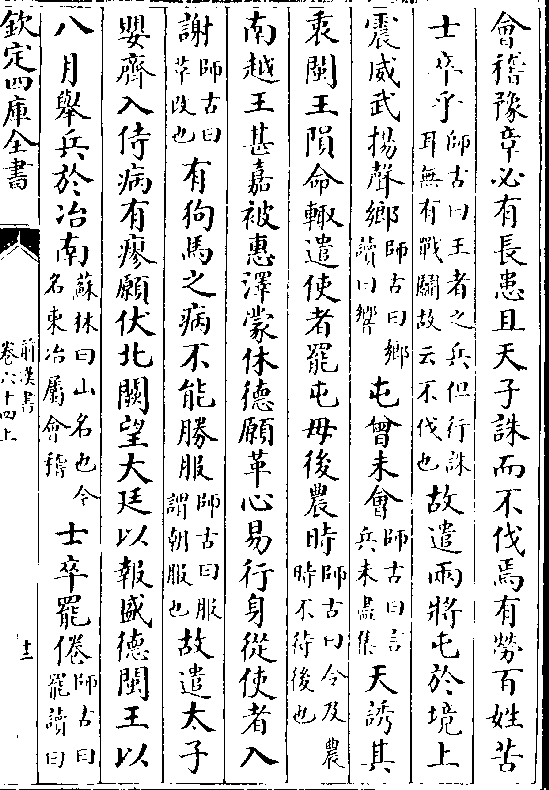 會稽豫章必有長患且天子誅而不伐焉有勞百姓苦
士卒乎師古曰王者之兵但行誅耳無有戰鬭故云不伐也故遣兩將屯於境上
震威武揚聲鄉師古曰鄉讀曰響屯曾未會師古曰言兵未盡集天誘其
衷閩王隕命輙遣使者罷屯毋後農時師古曰令及農時不待後也
南越王甚嘉被惠澤蒙休德願革心易行身從使者入
謝師古曰革改也有狗馬之病不能勝服師古曰服謂朝服也故遣太子
嬰齊入侍病有瘳願伏北闕望大廷以報盛德閩王以
八月舉兵於冶南蘇林曰山名也今名東冶屬會稽士卒罷倦師古曰罷讀曰
欽定四庫全書
前漢書
卷六十四上
十三